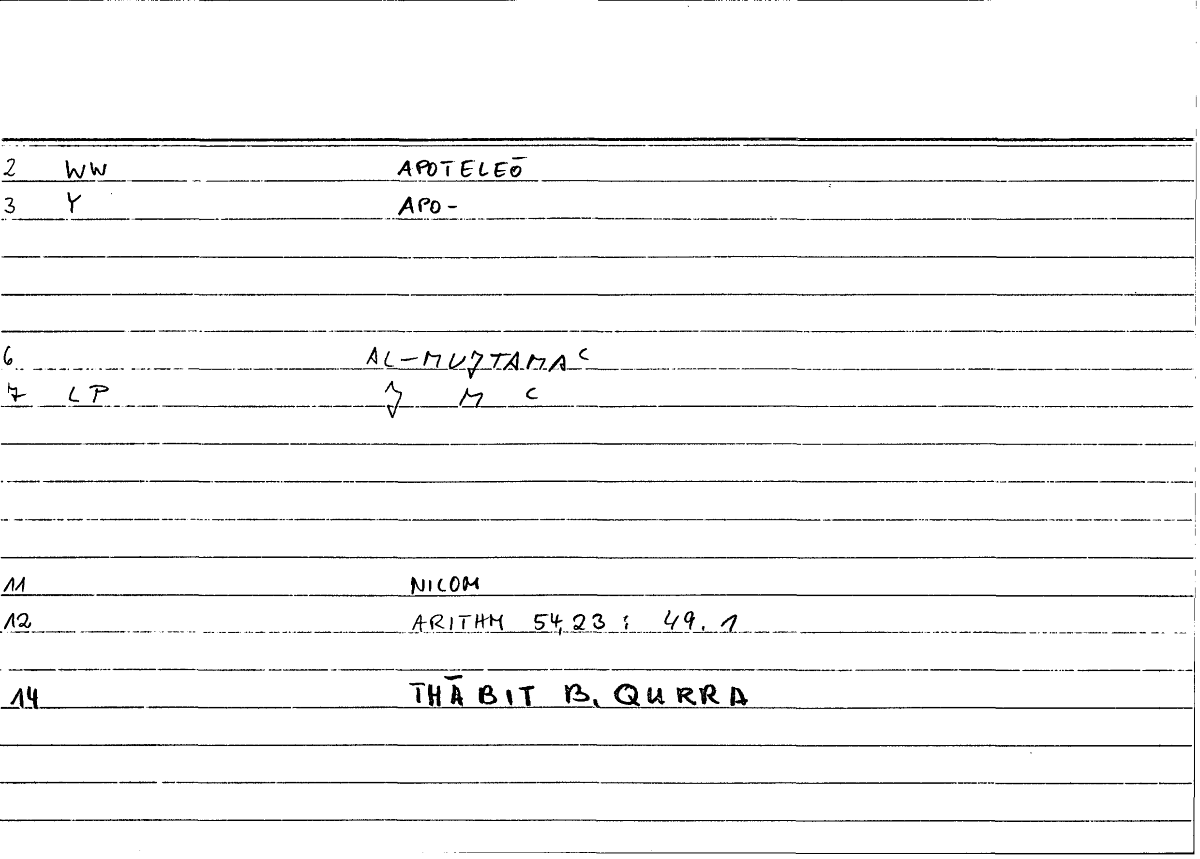 2 WW APOTELEŌ
3 Y APO-
6 AL-MUJTAMAʿ
7 LP J M ʿ
11 NICOM
12 ARITHM 54,23 : 49.1
14 THĀBIT B. QURRA